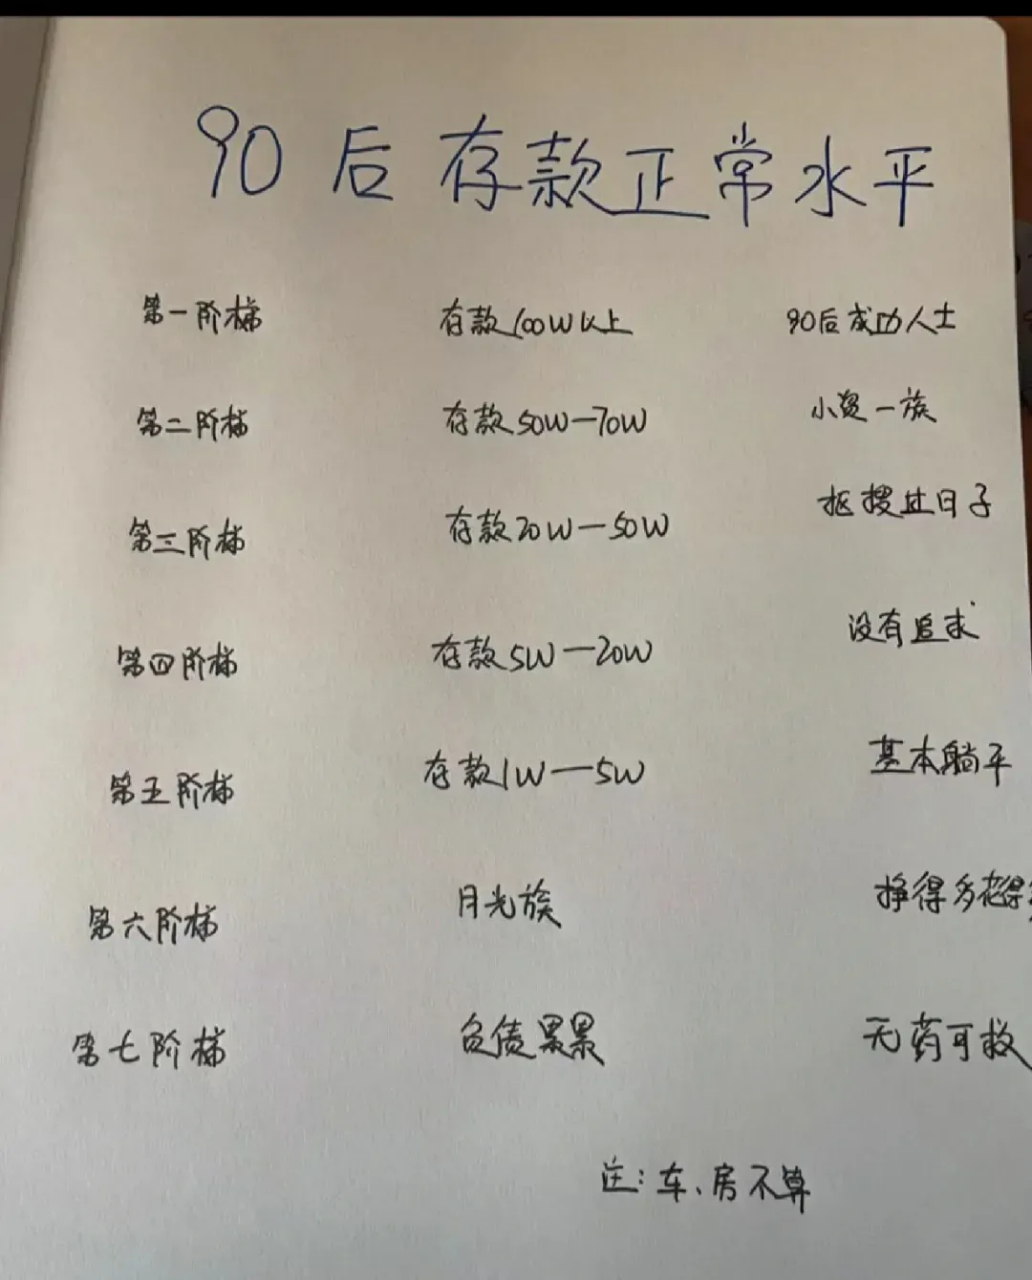 90后存款正常水平
第一阶梯 存款100W以上 90后成功人士
第二阶梯 存款50W—70W 小资一族
第三阶梯 存款20W—50W 抠搜过日子
第四阶梯 存款5W—20W 没有追求
第五阶梯 存款1W—5W 基本躺平
第六阶梯 月光族 挣得多花得
第七阶梯 负债累累 无药可救
注:车、房不算